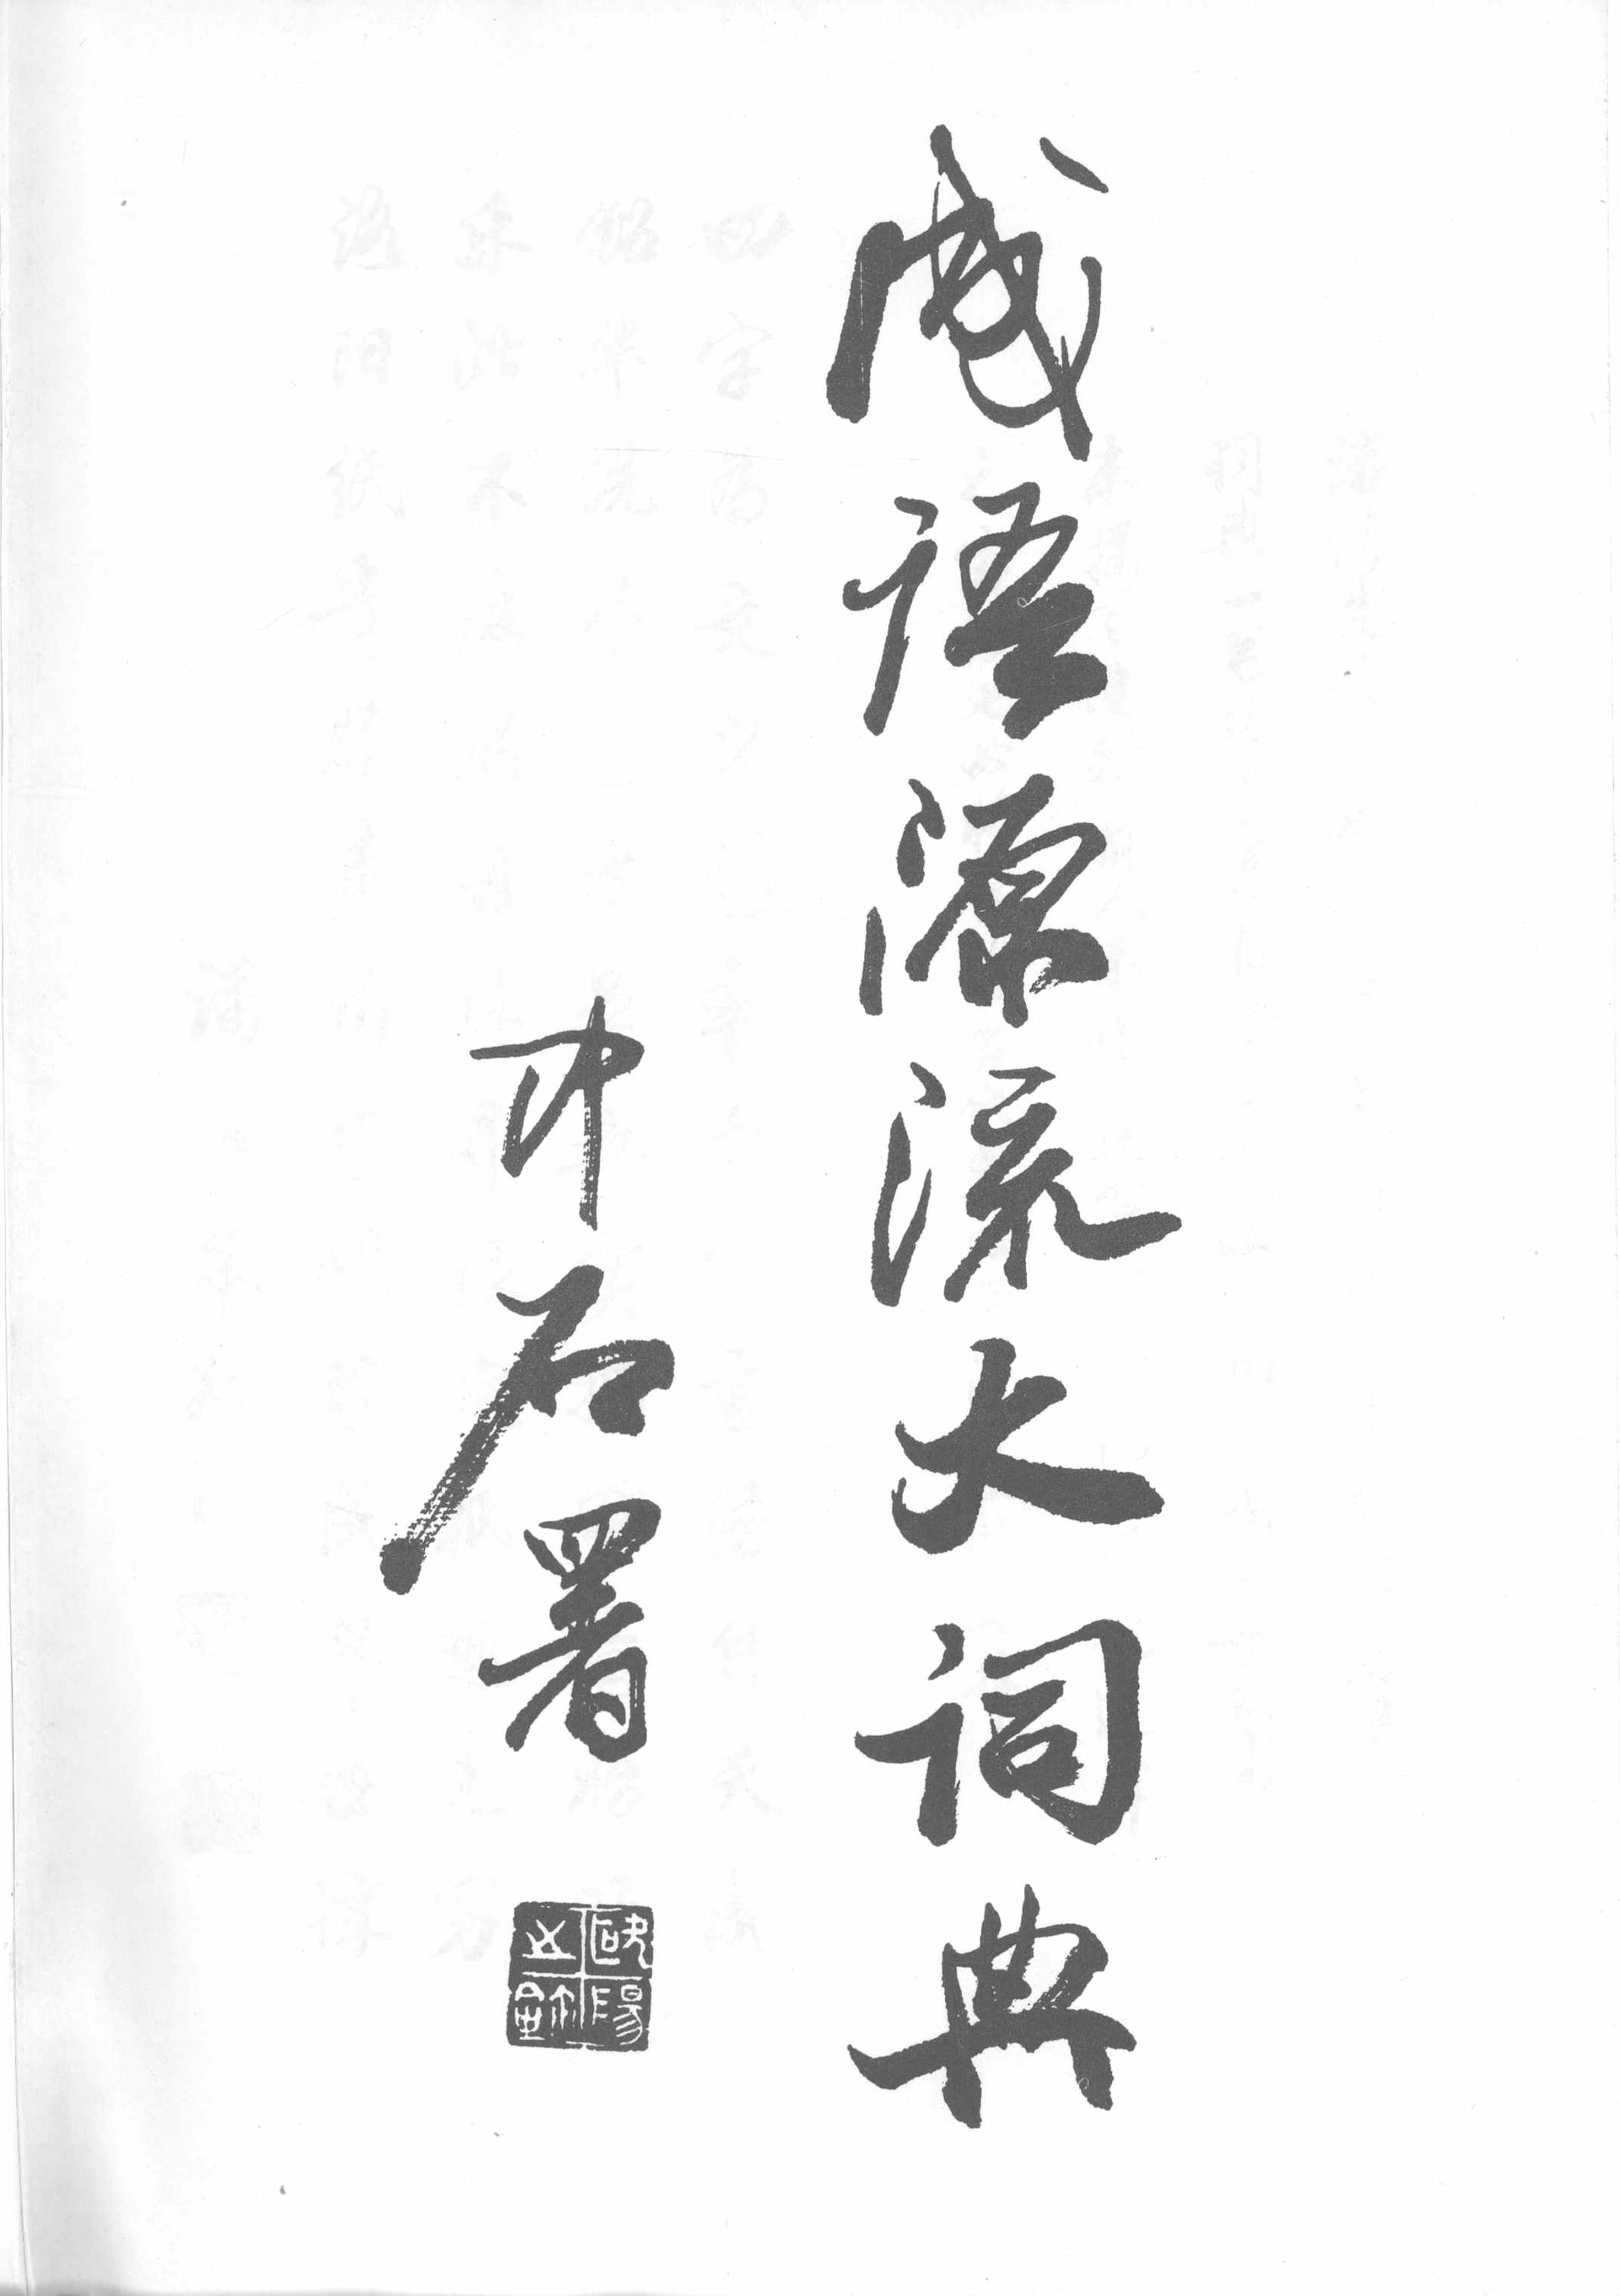 成语源流大词典
中石署
欧阳